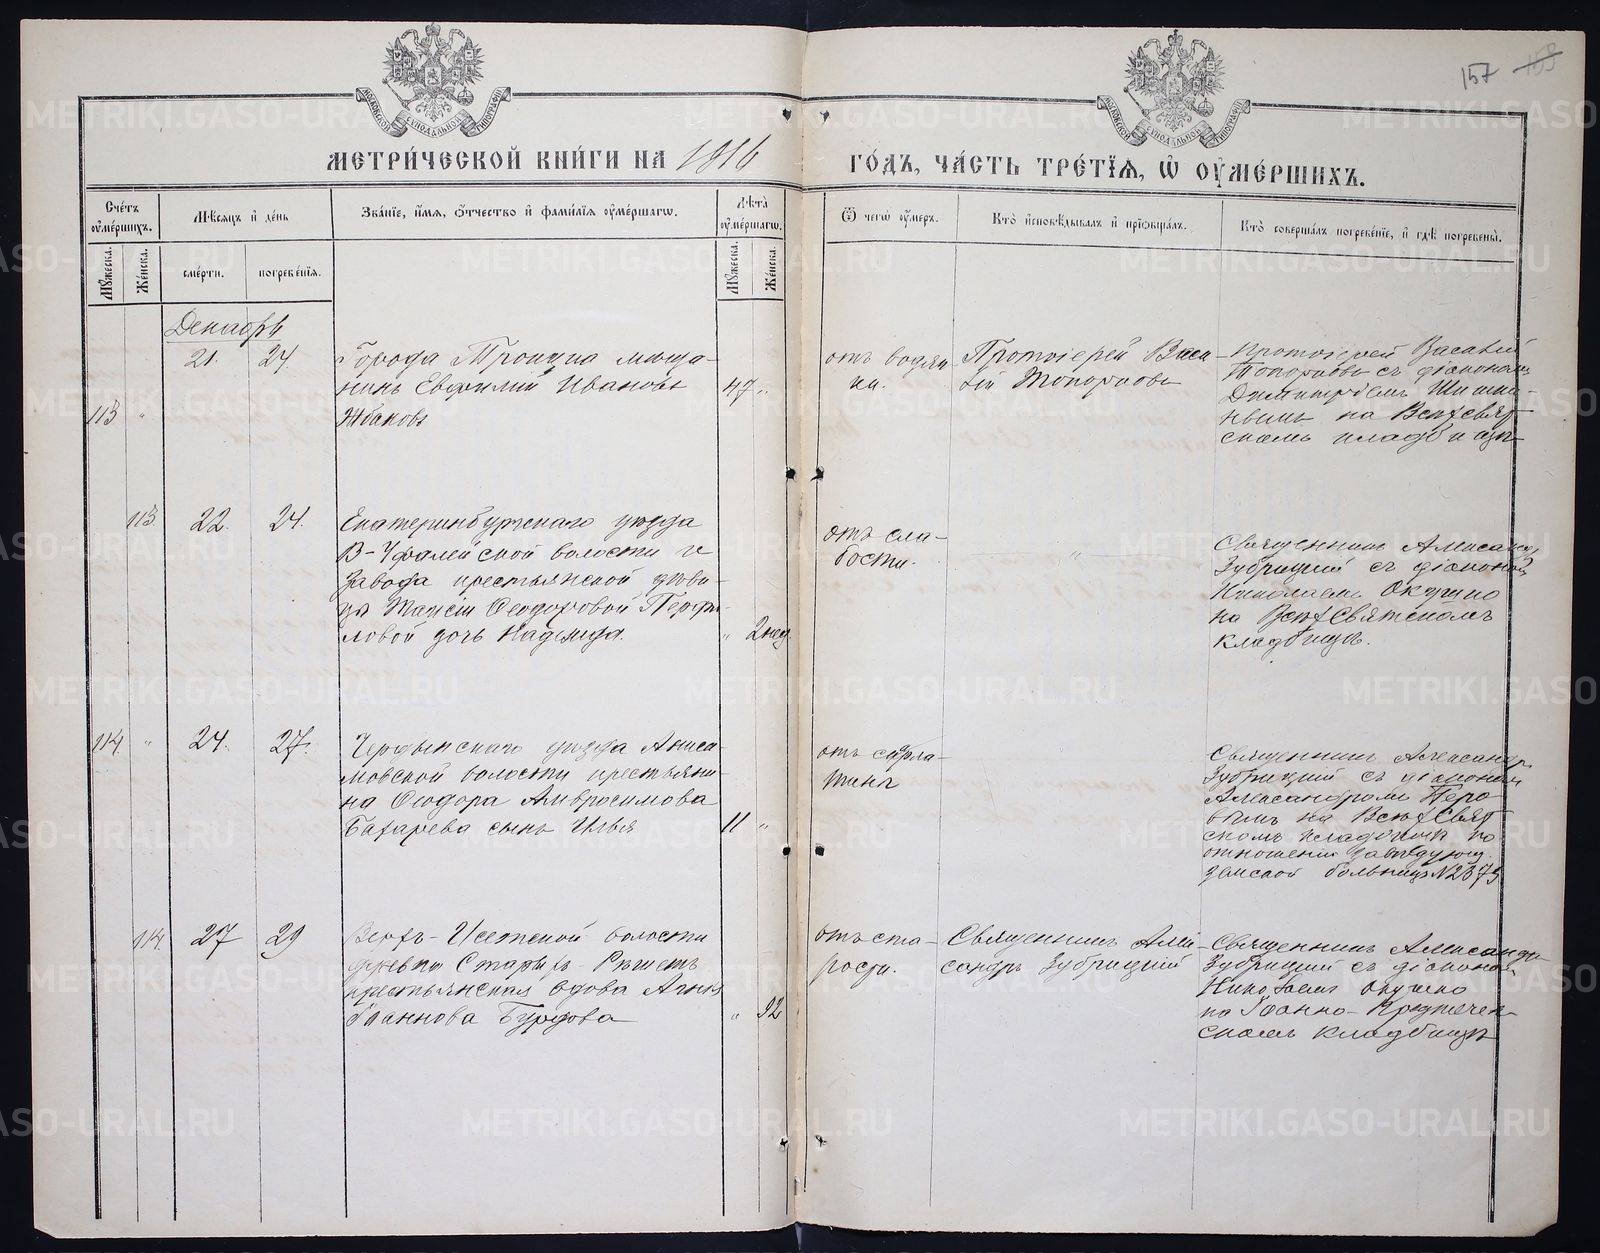 157 158
МОСКОВСКОЙ СУНОДАЛЬНОЙ ТИПОГРАФІИ
МОСКОВСКОЙ СУНОДАЛЬНОЙ ТИПОГРАФІИ
МЕТРИ́ЧЕСКОЙ КНИ́ГИ НА 1916 ГО́ДЪ, ЧА́СТЬ ТРЕ́ТІѦ, Ѡ҆ ОУ҆МЕ́РШИХЪ.
Сче́тъ оу҆ме́ршихъ.
Мѣ́сяцъ и҆ де́нь
Зва́ніе, и҆́мя, ѻ҆́тчество и҆ фами́лія оу҆ме́ршагѡ.
Лѣ́та оу҆ме́ршагѡ.
Ѿ чегѡ̀ оу҆́меръ.
Кто̀ и҆сповѣ́дывалъ и҆ прїѡбща́лъ.
Кто̀ соверша́лъ погребе́ніе, и҆ гдѣ̀ погребены̀.
Мꙋ́жеска. Же́нска. сме́рти. погребе́нія. Мꙋ́жеска. Же́нска.
Декабрь
113 " 21. 24 Города Троицка мѣща-
нинъ Евфимій Ивановъ
Жбаковъ 47 "
отъ водян-
ки.
Протоіерей Васи-
лій Топорковъ
Протоіерей Василій
Топорковъ съ діакономъ
Димитріемъ
на Всѣхсвят-
скомъ кладбищѣ
113 22. 24. Екатеринбургскаго уѣзда
В-Уфалейской волости и
завода крестьянской дѣви-
цы Ѳеодоровой Перфи-
ловой дочь Надежда. " 2 нед
отъ сла-
бости.
"
Священникъ Александръ
Зубрицкій съ діакономъ
Николаемъ Окушко
на Всѣхсвятскомъ
кладбищѣ.
114 " 24. 27. Чердынскаго уѣзда Аниса-
мовской волости крестьяни-
на Ѳеодора Амвросимова
Бахарева сынъ Илья 11 "
отъ скарла-
тины
Священникъ Александръ
Зубрицкій съ діакономъ
Александромъ Перо-
вымъ на Всѣхсвят-
скомъ кладбищѣ по
отношенію завѣдующ.
земской больницы №2375
114. 27 29 Верхъ-Исетской волости
дѣревни Старыхъ-Рѣшетъ
крестьянская вдова Анна
Іоаннова Бурдова " 92
отъ ста-
рости.
Священникъ Алек-
сандръ Зубрицкій
Священникъ Александръ
Зубрицкій съ діакономъ
Николаемъ Окушко
на Іоанно-Предтечен-
скомъ кладбищѣ
METRIKI.GASO-URAL.RU